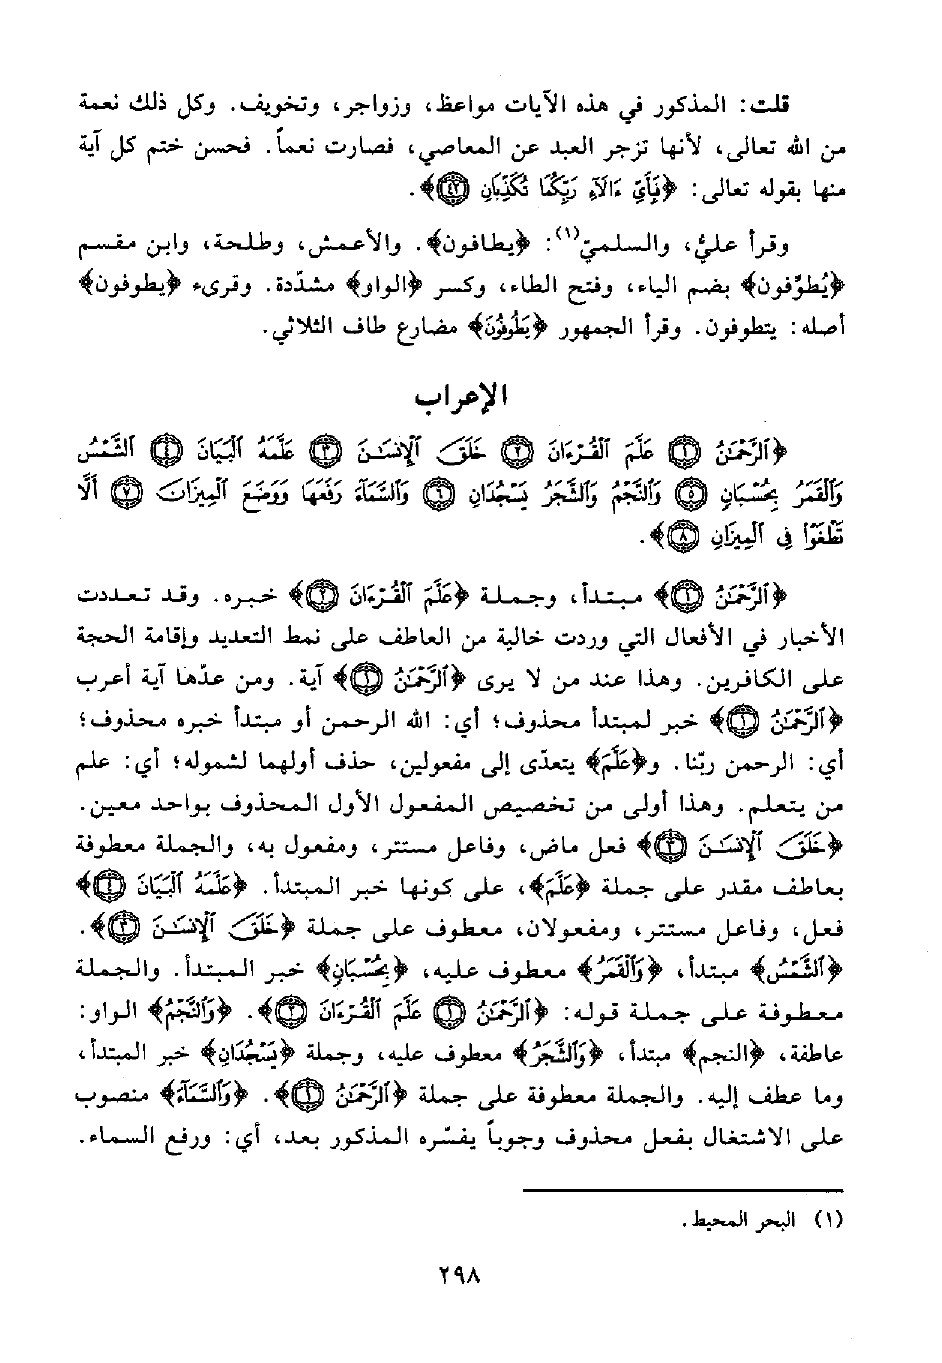 قلت: المذكور في هذه الآيات مواعظ، وزواجر، وتخويف. وكل ذلك نعمة
من الله تعالى، لأنها تزجر العبد عن المعاصي، فصارت نعماً. فحسن ختم كل آية
منها بقوله تعالى: ﴿فَبِأَيِّ ءَالَآءِ رَبِّكُمَا تُكَذِّبَانِ ﴿٤٢﴾﴾.
وقرأ عليّ، والسلميّ(١): ﴿يطافون﴾. والأعمش، وطلحة، وابن مقسم
﴿يُطوَّفون﴾ بضم الياء، وفتح الطاء، وكسر ﴿الواو﴾ مشدّدة. وقرىء ﴿يطوفون﴾
أصله: يتطوفون. وقرأ الجمهور ﴿يَطُوفُونَ﴾ مضارع طاف الثلاثي.
الإعراب
﴿ٱلرَّحْمَٰنُ ﴿١﴾ عَلَّمَ ٱلْقُرْءَانَ ﴿٢﴾ خَلَقَ ٱلْإِنسَٰنَ ﴿٣﴾ عَلَّمَهُ ٱلْبَيَانَ ﴿٤﴾ ٱلشَّمْسُ
وَٱلْقَمَرُ بِحُسْبَانٍ ﴿٥﴾ وَٱلنَّجْمُ وَٱلشَّجَرُ يَسْجُدَانِ ﴿٦﴾ وَٱلسَّمَآءَ رَفَعَهَا وَوَضَعَ ٱلْمِيزَانَ ﴿٧﴾ أَلَّا
تَطْغَوْا۟ فِى ٱلْمِيزَانِ ﴿٨﴾﴾.
﴿ٱلرَّحْمَٰنُ ﴿١﴾﴾ مبتدأ، وجملة ﴿عَلَّمَ ٱلْقُرْءَانَ ﴿٢﴾﴾ خبره. وقد تعددت
الأخبار في الأفعال التي وردت خالية من العاطف على نمط التعديد وإقامة الحجة
على الكافرين. وهذا عند من لا يرى ﴿ٱلرَّحْمَٰنُ ﴿١﴾﴾ آية. ومن عدّها آية أعرب
﴿ٱلرَّحْمَٰنُ ﴿١﴾﴾ خبر لمبتدأ محذوف؛ أي: الله الرحمن أو مبتدأ خبره محذوف؛
أي: الرحمن ربّنا. و﴿عَلَّمَ﴾ يتعدّى إلى مفعولين، حذف أولهما لشموله؛ أي: علم
من يتعلم. وهذا أولى من تخصيص المفعول الأول المحذوف بواحد معين.
﴿خَلَقَ ٱلْإِنسَٰنَ ﴿٣﴾﴾ فعل ماض، وفاعل مستتر، ومفعول به، والجملة معطوفة
بعاطف مقدر على جملة ﴿عَلَّمَ﴾، على كونها خبر المبتدأ. ﴿عَلَّمَهُ ٱلْبَيَانَ ﴿٤﴾﴾
فعل، وفاعل مستتر، ومفعولان، معطوف على جملة ﴿خَلَقَ ٱلْإِنسَٰنَ ﴿٣﴾﴾.
﴿ٱلشَّمْسُ﴾ مبتدأ، ﴿وَٱلْقَمَرُ﴾ معطوف عليه، ﴿بِحُسْبَانٍ﴾ خبر المبتدأ. والجملة
معطوفة على جملة قوله: ﴿ٱلرَّحْمَٰنُ ﴿١﴾ عَلَّمَ ٱلْقُرْءَانَ ﴿٢﴾﴾. ﴿وَٱلنَّجْمُ﴾ الواو:
عاطفة، ﴿النجم﴾ مبتدأ، ﴿وَٱلشَّجَرُ﴾ معطوف عليه، وجملة ﴿يَسْجُدَانِ﴾ خبر المبتدأ،
وما عطف إليه. والجملة معطوفة على جملة ﴿ٱلرَّحْمَٰنُ ﴿١﴾﴾. ﴿وَٱلسَّمَآءَ﴾ منصوب
على الاشتغال بفعل محذوف وجوباً يفسّره المذكور بعد، أي: ورفع السماء.
(١) البحر المحيط.
٢٩٨